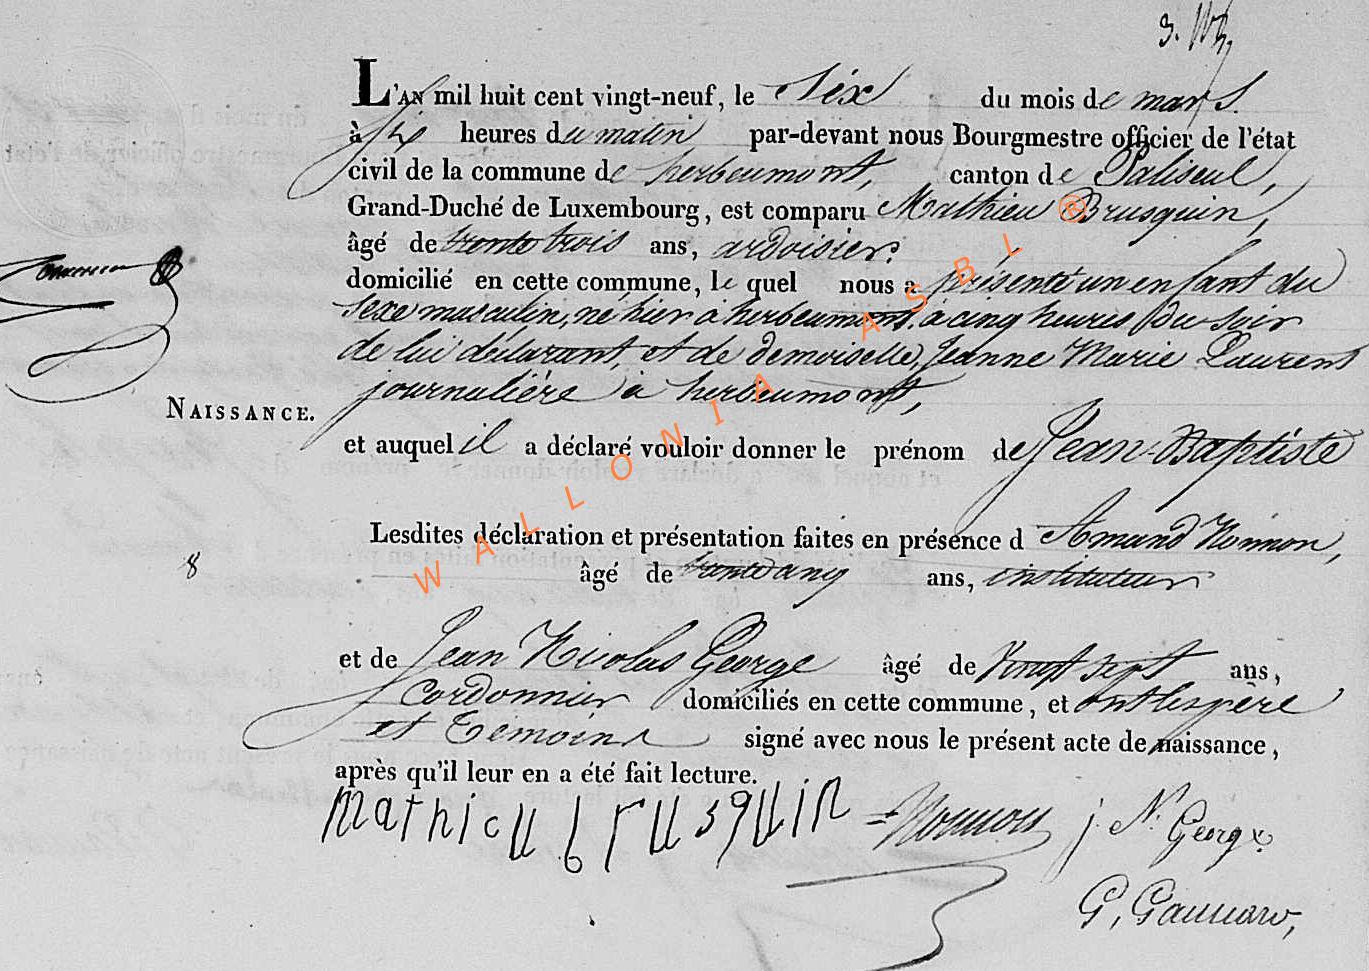 L'AN mil huit cent vingt-neuf, le Six du mois de mars.
à six heures du matin par-devant nous Bourgmestre officier de l'état
civil de la commune de herbeumont, canton de Paliseul,
Grand-Duché de Luxembourg, est comparu Mathieu Brusquin,
âgé de trente trois ans, ardoisier.
domicilié en cette commune, le quel nous a présenté un enfant du
sexe masculin, né hier à herbeumont, à cinq heures du soir
de lui déclarant, et de demoiselle, Jeanne Marie Laurent
journalière à herbeumont,
NAISSANCE.
et auquel il a déclaré vouloir donner le prénom de Jean-Baptiste
Lesdites déclaration et présentation faites en présence d Amand
8
âgé de trente cinq ans, instituteur
et de Jean Nicolas George âgé de Vingt sept ans,
cordonnier domiciliés en cette commune, et ont les père
et Temoins signé avec nous le présent acte de naissance,
après qu'il leur en a été fait lecture.
mathieu brusquin j. N. George
WALLONIA ASBL ®